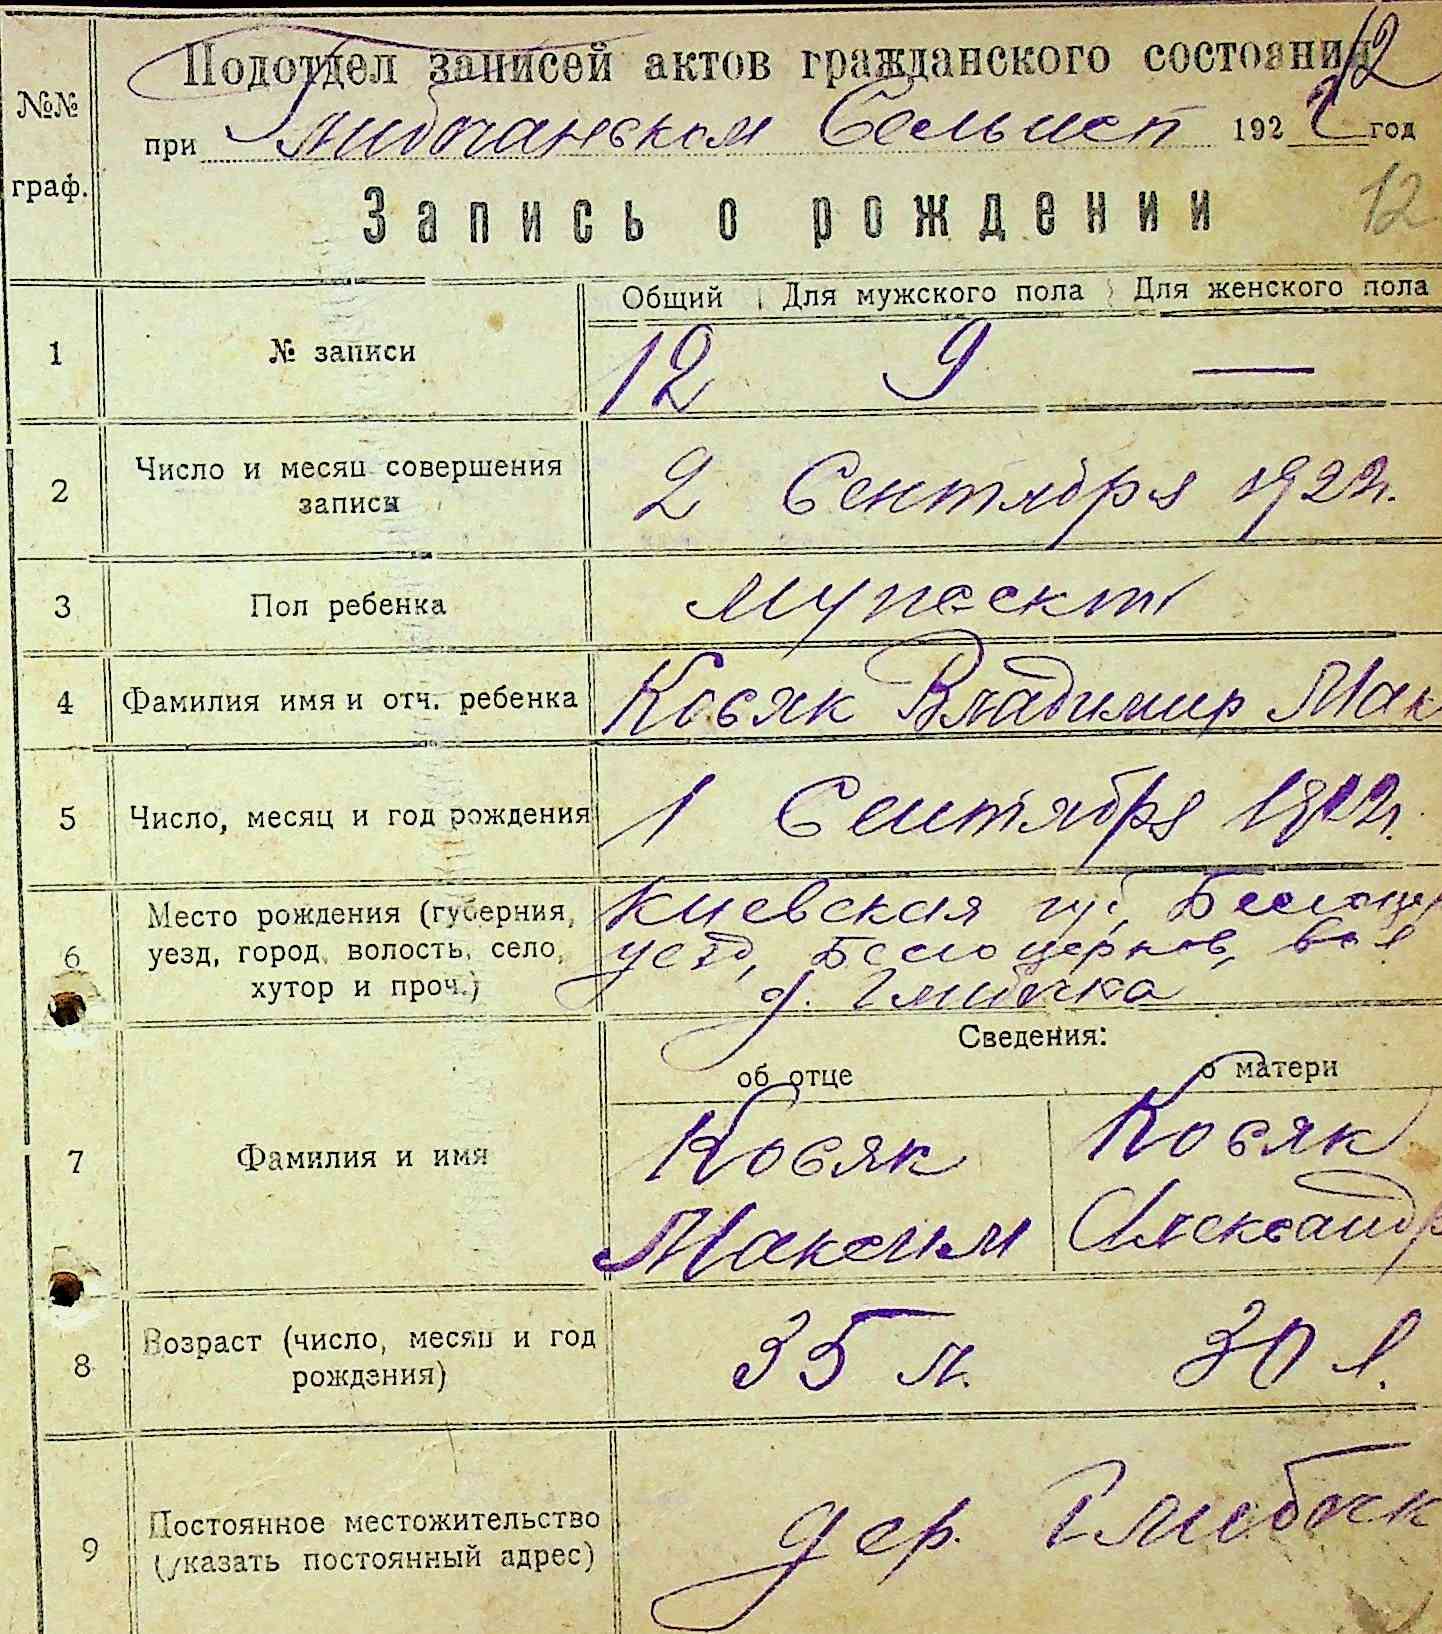 Подотдел записей актов гражданского состояния 12
№№ граф.
при Глибочанськом Сельисп 1922 год
12
Запись о рождении
Общий Для мужского пола Для женского пола
1 № записи 12 9 —
2 Число и месяц совершения записи 2 Сентября 1922 г.
3 Пол ребенка мужеск
4 Фамилия имя и отч. ребенка Ковяк Владимир Мак
5 Число, месяц и год рождения 1 Сентября 1922 г.
6 Место рождения (губерния, Киевская губ, Белоцер
уезд, город, волость, село, уезд, Белоцерков, вол
хутор и проч.) д. Глибочка
Сведения:
об отце о матери
7 Фамилия и имя Ковяк Ковяк
Максим Александр
8 Возраст (число, месяц и год рождения) 35 л. 30 л.
9 Постоянное местожительство
(указать постоянный адрес) дер. Глибочк